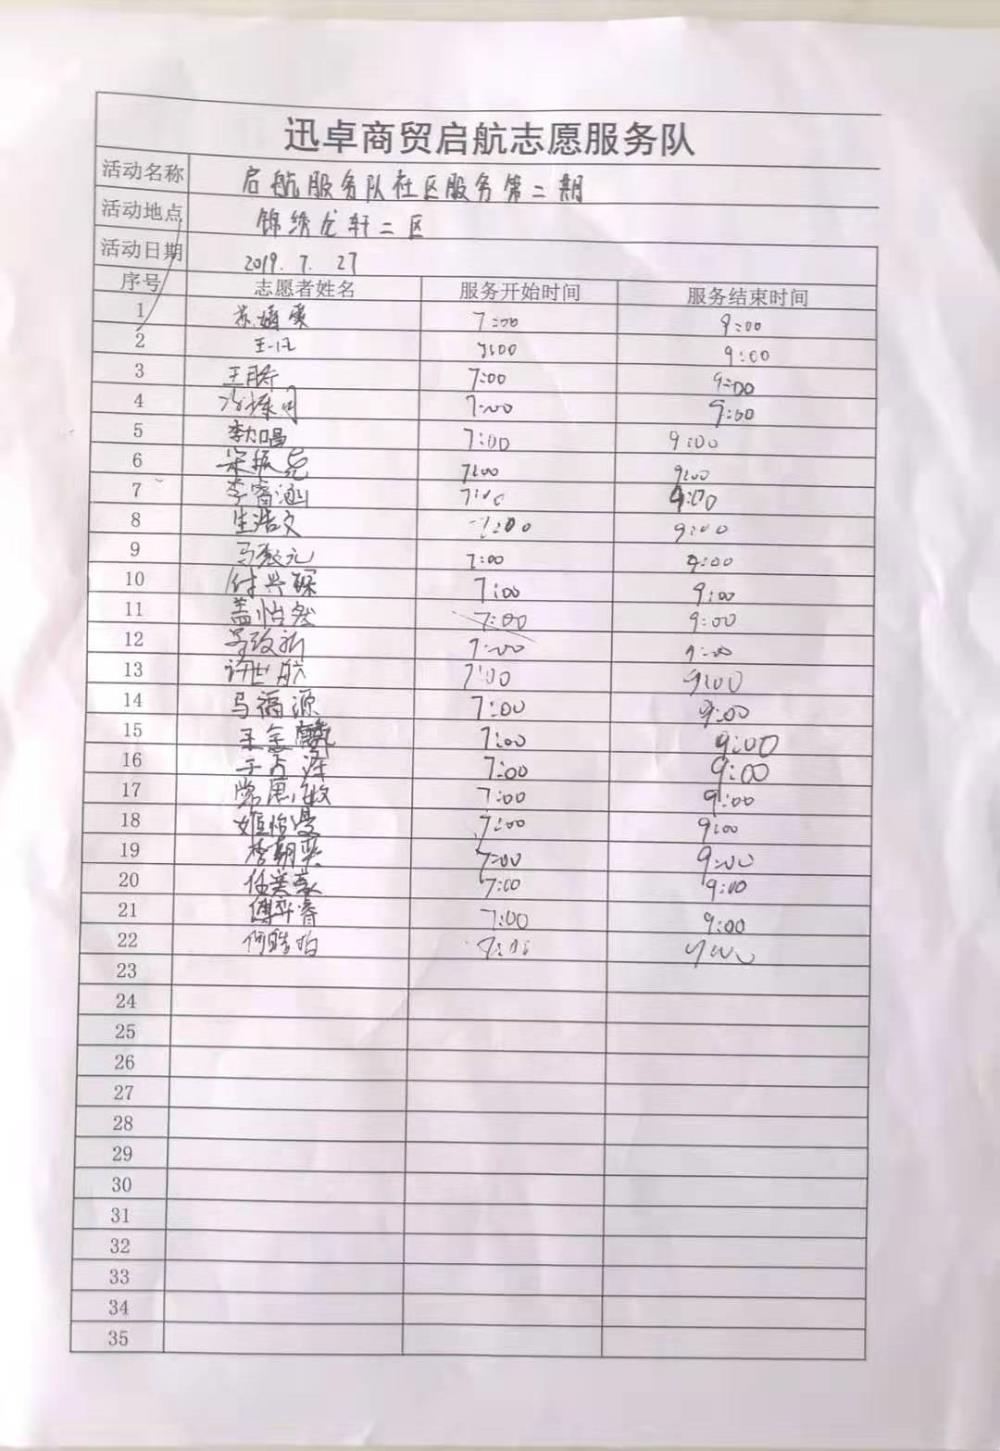 迅卓商贸启航志愿服务队
活动名称 启航服务队社区服务第二期
活动地点 锦绣龙轩二区
活动日期 2019.7.27
序号 志愿者姓名 服务开始时间 服务结束时间
1 7:00 9:00
2 王一凡 7:00 9:00
3 7:00 9:00
4 7:00 9:00
5 7:00 9:00
6 宋振尧 7:00 9:00
7 李睿涵 7:00 9:00
8 生浩文 7:00 9:00
9 7:00 9:00
10 付兴琛 7:00 9:00
11 盖怡然 7:00 9:00
12 7:00 9:00
13 许世航 7:00 9:00
14 马福源 7:00 9:00
15 7:00 9:00
16 7:00 9:00
17 7:00 9:00
18 姬怡曼 7:00 9:00
19 7:00 9:00
20 7:00 9:00
21 傅弈睿 7:00 9:00
22
23
24
25
26
27
28
29
30
31
32
33
34
35